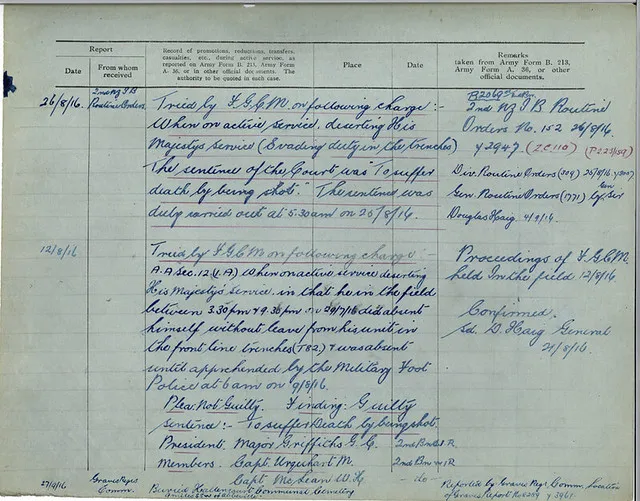 Report
Record of promotions, reductions, transfers,
casualties, etc., during active service, as
reported on Army Form B. 213, Army Form
A. 36, or in other official documents. The
authority to be quoted in each case.
Place
Date
Remarks
taken from Army Form B. 213,
Army Form A. 36, or other
official documents.
Date
From whom
received
26/8/16.
2nd NZ I B
Routine Orders
Tried by F.G.C.M. on following charge:-
When on active service, deserting His
Majesty's service (Evading duty in the trenches)
The sentence of the Court was "To suffer
death by being shot." The sentence was
duly carried out at 5.30 am on 25/8/16.
2nd NZ I B Routine
Orders No. 152 26/8/16.
Y2947
Div. Routine Orders (309) 25/8/16
Gen. Routine Orders (1771) by Gen Sir
Douglas Haig.
12/8/16
Tried by F.G.C.M on following charge
A.A Sec. 12 (1.A) When on active service deserting
His Majesty's service in that he in the field
between 3.30 pm & 9.30 pm on 29/7/16 did absent
himself without leave from his unit in
the front line trenches (T82) & was absent
until apprehended by the Military Foot
Police at 6 am on 9/8/16.
Plea: Not Guilty. Finding: Guilty
Sentence:- To suffer Death by being shot.
President. Major Griffiths G.C.
Members. Capt. Urquhart M.
Capt. McLean W.
- do -
Proceedings of F.G.C.M.
held In the field 12/8/16
Confirmed.
Sd. D. Haig General
21/8/16.
Graves Regs
Comm.
Buried Hallencourt Communal Cemetery
Reported by Graves Regs. Comm. Location
of Graves Report No